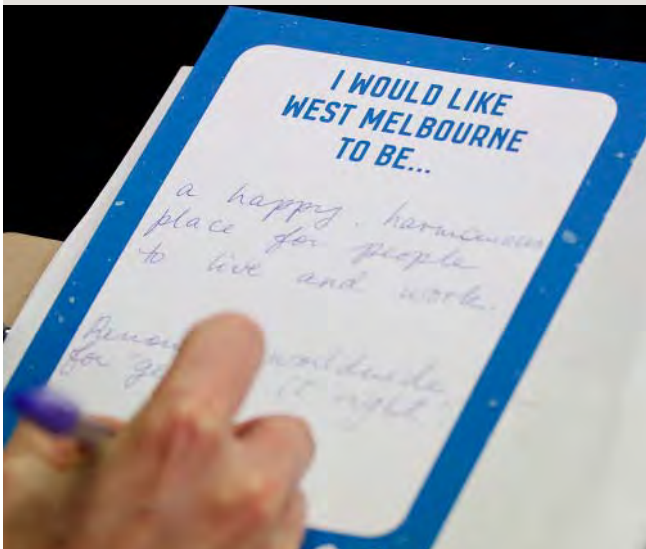 I WOULD LIKE
WEST MELBOURNE
TO BE...
a happy. harmonious
place for people
to live and work.
worldwide
for it right